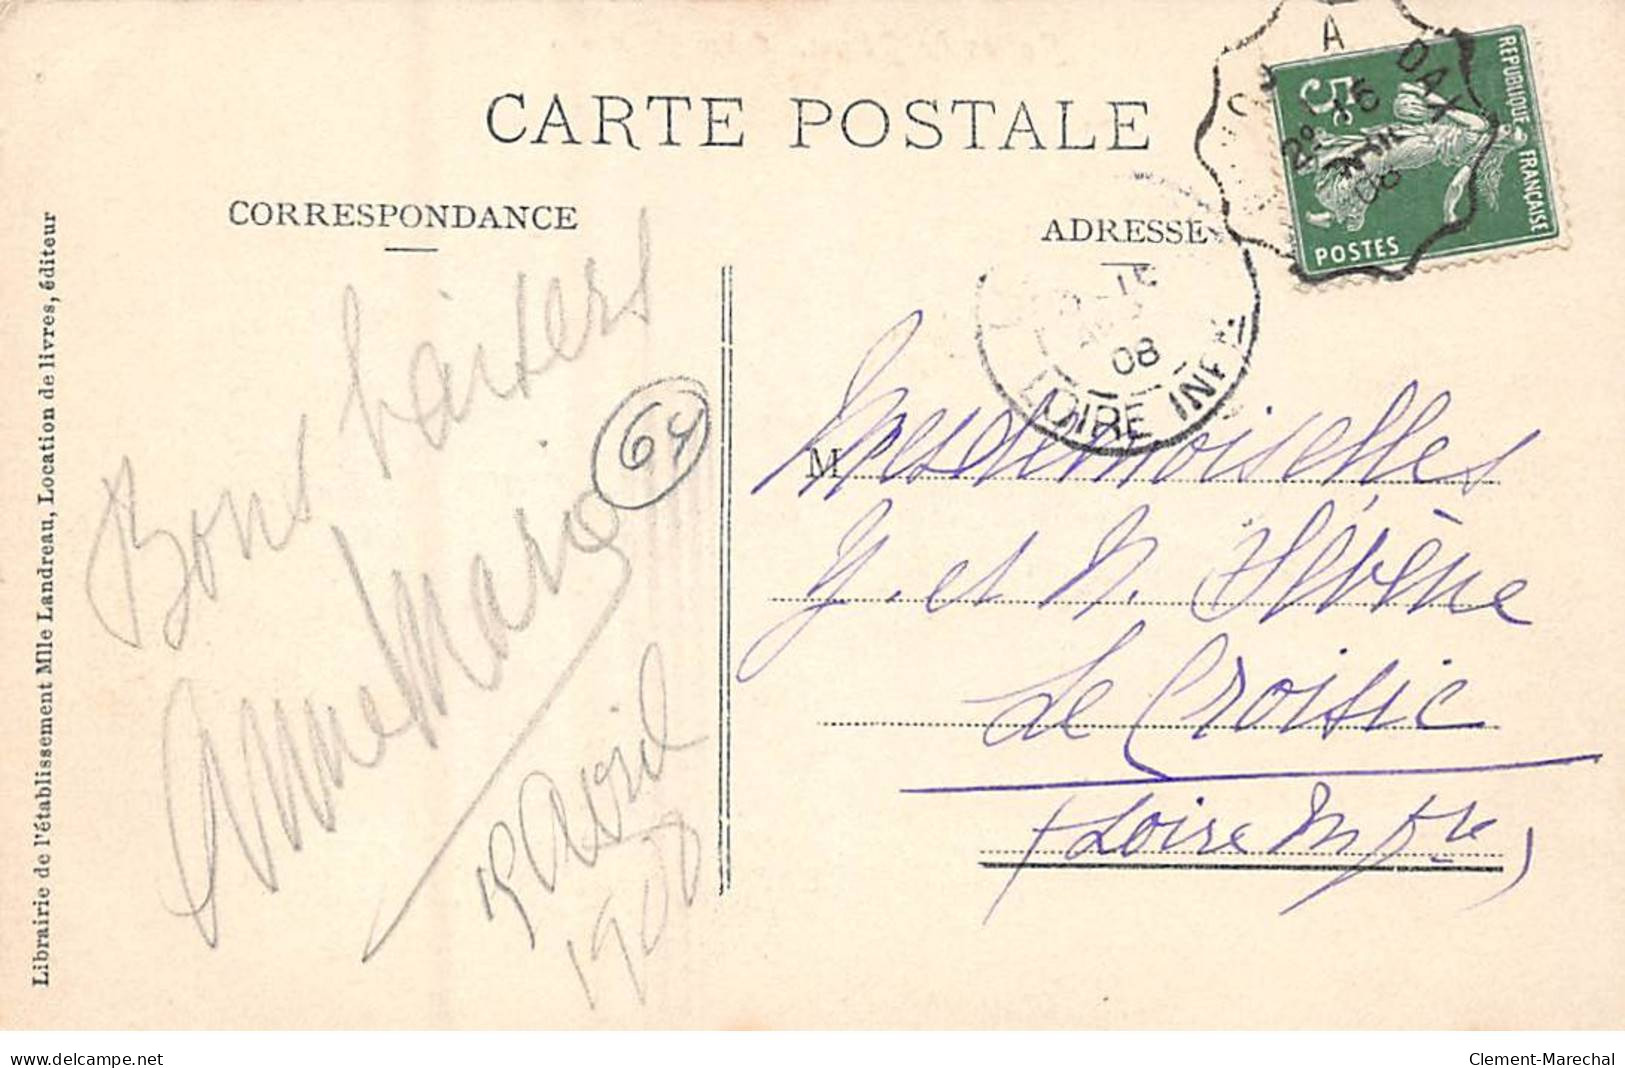 CARTE POSTALE
CORRESPONDANCE
ADRESSE
REPUBLIQUE FRANÇAISE
5c
POSTES
A DAX
16
08
08
LOIRE INF
Librairie de l'établissement Mlle Landreau, Location de livres, éditeur
Bons baisers
Anne Marie
15 Avril
1908
64
M
Mesdemoiselles
Y. et N. Hévène
Le Croisic
(Loire Infre)
delcampe.net
Clement-Marechal